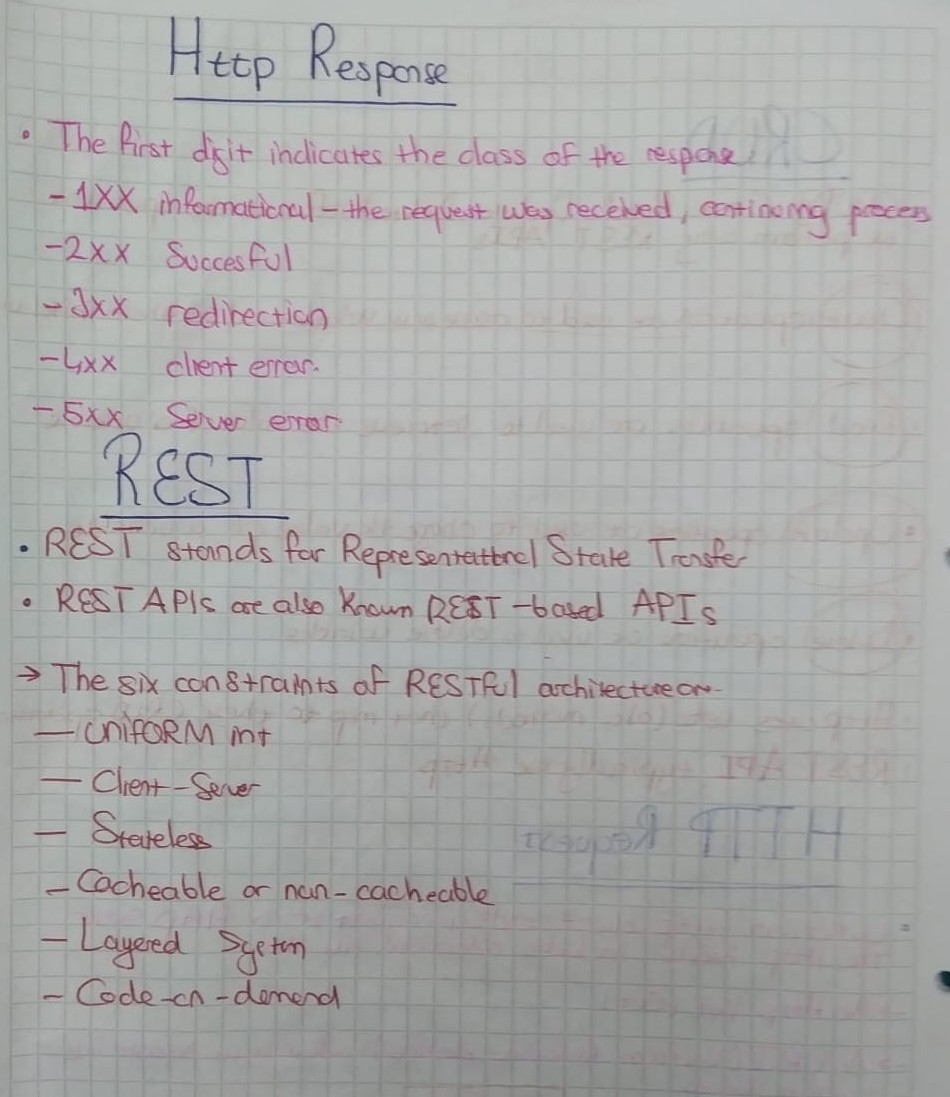 Http Response
• The first digit indicates the class of the response
- 1XX informational - the request was received, continuing process
- 2xx Succesful
- 3xx redirection
- 4xx client error.
- 5xx Server error
REST
• REST stands for Representational State Transfer
• REST APIs are also known REST-based APIs
→ The six constraints of RESTful architecture are
- UNIFORM int
- Client-Server
- Stateless
- Cacheable or non-cacheable
- Layered System
- Code-on-demand
HTTP Request